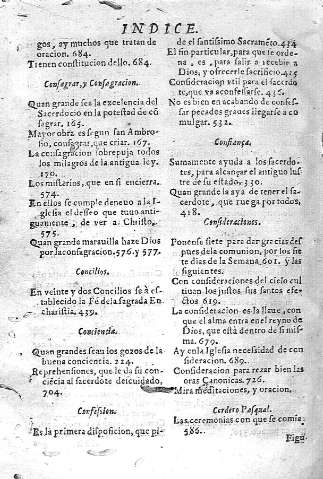 INDICE.
gos, ay muchos que tratan de
oracion. 684.
Tienen constitucion dello. 684.
Consagrar, y Consagracion.
Quan grande sea la excelencia del
Sacerdocio en la potestad de cō
sagrar. 165.
Mayor obra es segun san Ambro-
sio, consagrar, que criar. 167.
La consagracion sobrepuja todos
los milagros de la antigua ley.
170.
Los misterios, que en si encierra.
574.
En ellos se cumple de nueuo a la Y-
glesia el desseo que tuuo anti-
guamente, de ver a Christo.
575.
Quan grande marauilla haze Dios
por la consagracion, 576. y 577.
Concilios.
En veinte y dos Concilios se à es-
tablecido la Fè de la sagrada Eu-
charistia. 439.
Conciencia.
Quan grandes sean los gozos de la
buena conciencia. 224.
Reprehensiones, que le da su con-
ciēcia al sacerdote descuidado,
704.
Confession.
Es la primera disposicion, que pi-
de el santissimo Sacramēto. 434
El fin particular, para que se orde-
na, es, para salir a recebir a
Dios, y ofrecerle sacrificio. 435
Consideracion vtil para el sacerdo
te, que va a confessarse. 436.
No es bien en acabando de confes-
sar pecados graues llegarse a co
mulgar. 532.
Confiança.
Sumamente ayuda a los sacerdo-
tes, para alcançar el antiguo lus
tre de su estado. 330.
Quan grande la aya de tener el sa-
cerdote, que ruega por todos,
418.
Consideraciones.
Ponense siete para dar gracias des
pues de la comunion, por los sie
te dias de la Semana, 601. y las
siguientes.
Con consideraciones del cielo cul
tiuan los justos sus santos afe-
ctos 619.
La consideracion es la llaue, con
que el alma entra en el reyno de
Dios, que està dentro de si mis-
ma. 679.
Ay en la Iglesia necessidad de con-
sideracion. 689.
Consideracion para rezar bien las
oras Canonicas. 726.
Mira meditaciones, y oracion.
Cordero Pasqual.
Las ceremonias con que se comia
586.
Figu-